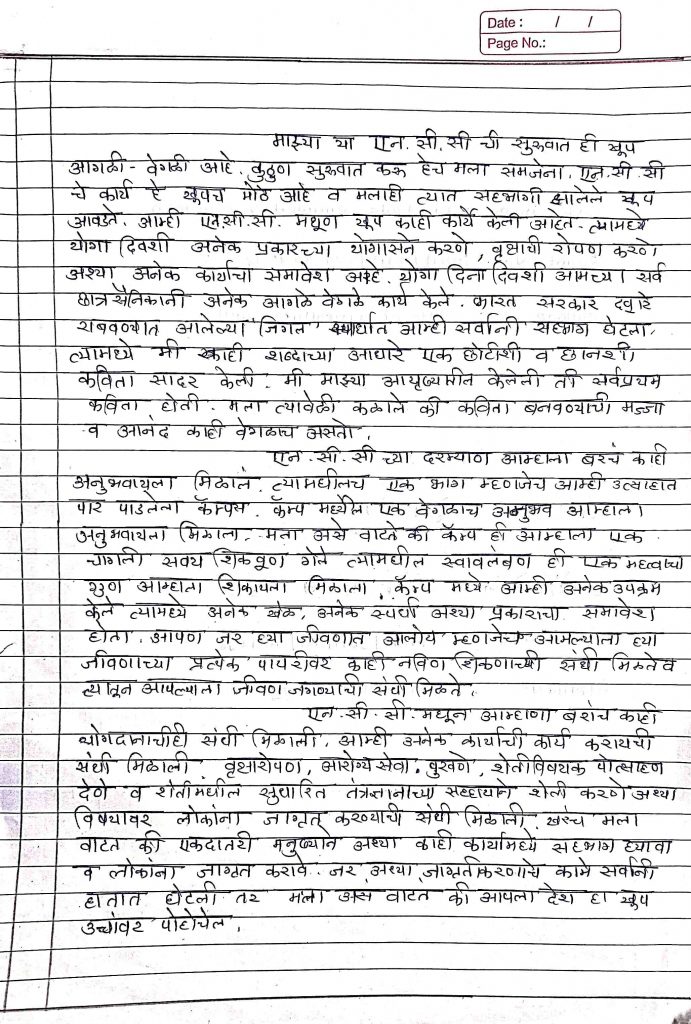 Date : / /
Page No.:
माझ्या या एन.सी.सी ची सुरुवात ही खूप
आगळी-वेगळी आहे. कुठुण सुरुवात करू हेच मला समजेना. एन.सी.सी
चे कार्य हे खूपच मोठे आहे व मलाही त्यात सहभागी झालेले खूप
आवडते. आम्ही एन.सी.सी. मधूण खूप काही कार्ये केली आहेत. त्यामध्ये
योगा दिवशी अनेक प्रकारच्या योगासने करणे, वृक्षाची रोपण करणे
अश्या अनेक कार्याचा समावेश आहे. योगा दिना दिवशी आमच्या सर्व
छात्र सैनिकानी अनेक आगळे वेगळे कार्य केले. भारत सरकार दवारे
राबवण्यात आलेल्या आम्ही सर्वानी सहभाग घेतला.
त्यामध्ये मी काही शब्दाच्या आधारे एक छोटीशी व छानशी
कविता सादर केली. मी माझ्या आयुष्यातील केलेली ती सर्वप्रथम
कविता होती. मला त्यावेळी कळाले की कविता बनवण्याची मज्जा
व आनंद काही वेगळाच असतो.
एन.सी.सी च्या दरम्याण आम्हाला बरचं काही
अनुभवायला मिळाले. त्यामधीलच एक भाग म्हणजेच आम्ही उत्साहात
पार पाडलेला कॅम्प. कॅम्प मध्येील एक वेगळाच अनुभव आम्हाला
अनुभवायला मिळाला. मला असे वाटते की कॅम्प ही आम्हाला एक
चांगली सवय शिकवूण गेले त्यामधील स्वावलंबण ही एक महत्वाचा
गुण आम्हाला शिकायला मिळाला. कॅम्प मध्ये आम्ही अनेक उपक्रम
केले त्यामध्ये अनेक खेळ, अनेक स्पर्धा अश्या प्रकाराचा समावेश
होता. आपण जर ह्या जीवणात आलोय म्हणजेच आपल्याला ह्या
जीवणाच्या प्रत्येक पायरीवर काही नविण शिकणाच्यी संधी मिळते व
त्यातून आपल्याला जीवण जगण्याची संधी मिळते.
एन.सी.सी. मधून आम्हाणा बराच काही
योगदानाचीही संधी मिळाली. आम्ही अनेक कार्याची कार्य करायची
संधी मिळाली. वृक्षारोपण, आरोग्य सेवा पुरवणे, शेतीविषयक प्रोत्साहण
देणे व शेतीमधील सुधारित तंत्रज्ञानाच्या सहाय्याने शेती करणे अश्या
विषयावर लोकांना जागृत करण्याची संधी मिळाली. खरंच मला
वाटत की एकदातरी मनुष्याने अश्या काही कार्यामध्ये सहभाग घ्यावा
व लोकांना जागृत करावे. जर अश्या जागृतीकरणाचे कामे सर्वानी
हातात घेतली तर मला असं वाटत की आपला देश हा खूप
उच्चांवर पोहोचेल.